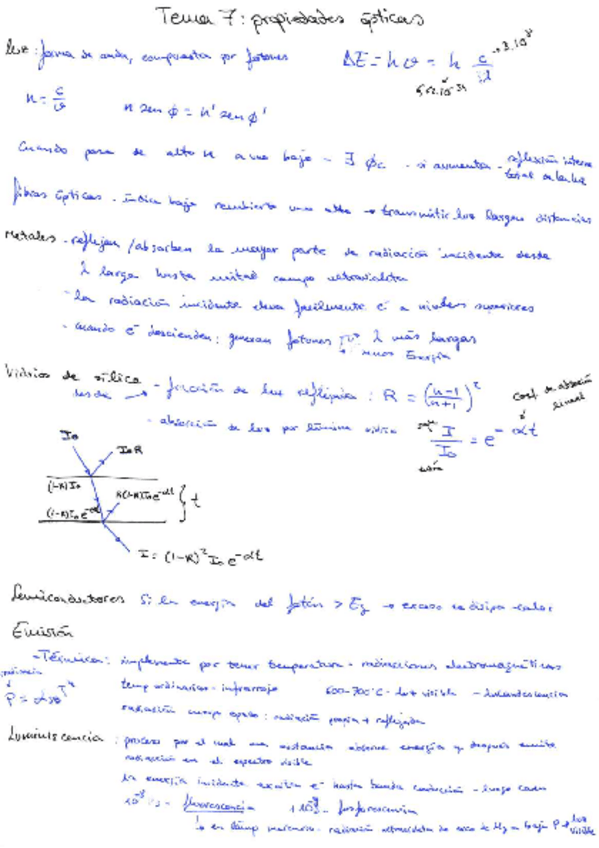 Tema 7: propiedades ópticas
luz: forma de onda, compuesta por fotones ΔE = hυ = h c/λ → 3·10⁸
6,62·10⁻³⁴
n = c/υ n sen ϕ = n' sen ϕ'
Cuando pasa de alto n a uno bajo - ∃ ϕc · si aumenta - reflexión interna
total de la luz
fibras ópticas - índice bajo recubierto uno alto → transmitir luz largas distancias
Metales - reflejan / absorben la mayor parte de radiación incidente desde
λ larga hasta mitad campo ultravioleta
- la radiación incidente eleva fácilmente é a niveles superiores
- cuando é descienden: generan fotones λ más largas
menos Energía
Vidrios de sílica - fracción de luz reflejada: R = ((n-1)/(n+1))²
desde coef. de absorción
lineal
- absorción de luz por lámina vidrio I/I₀ = e^-αt
I₀ I₀R
(1-R)I₀ R(1-R)I₀e^-αt
(1-R)I₀e^-αt t
I = (1-R)² I₀ e^-αt
Semiconductores Si la energía del fotón > Eg → exceso se disipa calor
Emisión
- Térmica: simplemente por tener temperatura - radiaciones electromagnéticas
temp ordinarias - infrarrojo 600-700°C - luz visible - incandescencia
radiación cuerpo opaco: radiación propia + reflejada
Luminiscencia: proceso por el cual una sustancia absorbe energía y después emite
radiación en el espectro visible
la energía incidente excita é hasta banda conducción - luego caen
10⁻⁸ s - fluorescencia 10⁻⁸ - fosforescencia
↳ en lámp mercurio - radiación ultravioleta de arco de Hg a baja P → luz
visible